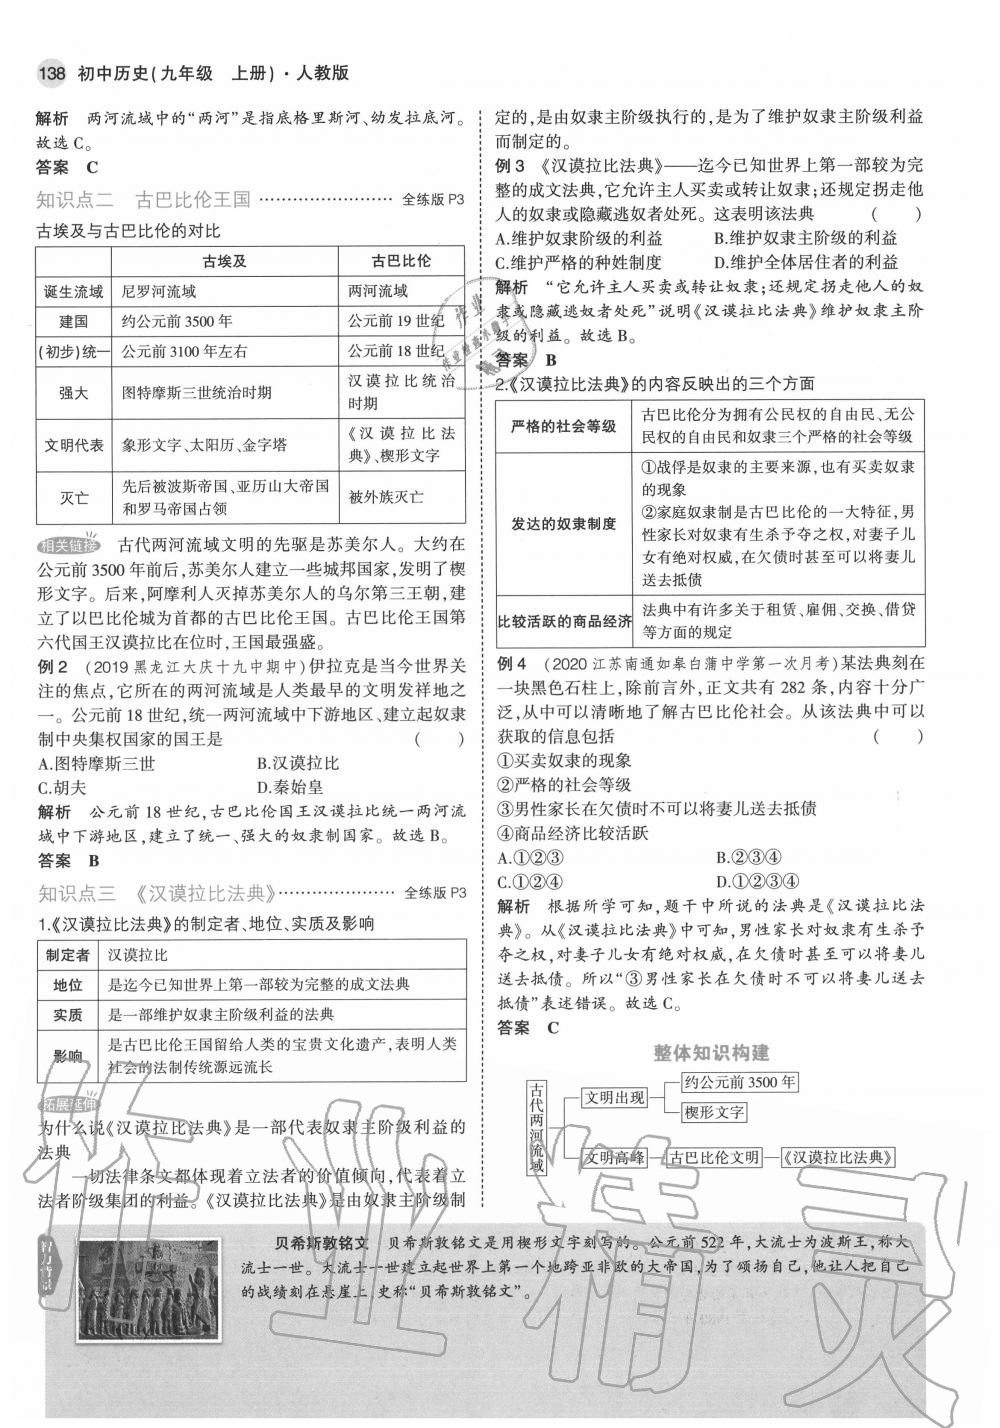 138 初中历史(九年级 上册)·人教版
解析 两河流域中的“两河”是指底格里斯河、幼发拉底河。
故选C。
答案 C
知识点二 古巴比伦王国 …………………… 全练版P3
古埃及与古巴比伦的对比
古埃及 古巴比伦
诞生流域 尼罗河流域 两河流域
建国 约公元前3500年 公元前19世纪
(初步)统一 公元前3100年左右 公元前18世纪
强大 图特摩斯三世统治时期 汉谟拉比统治
时期
文明代表 象形文字、太阳历、金字塔 《汉谟拉比法
典》、楔形文字
灭亡 先后被波斯帝国、亚历山大帝国
和罗马帝国占领 被外族灭亡
相关链接 古代两河流域文明的先驱是苏美尔人。大约在
公元前3500年前后,苏美尔人建立一些城邦国家,发明了楔
形文字。后来,阿摩利人灭掉苏美尔人的乌尔第三王朝,建
立了以巴比伦城为首都的古巴比伦王国。古巴比伦王国第
六代国王汉谟拉比在位时,王国最强盛。
例2 (2019黑龙江大庆十九中期中)伊拉克是当今世界关
注的焦点,它所在的两河流域是人类最早的文明发祥地之
一。公元前18世纪,统一两河流域中下游地区、建立起奴隶
制中央集权国家的国王是 ( )
A.图特摩斯三世 B.汉谟拉比
C.胡夫 D.秦始皇
解析 公元前18世纪,古巴比伦国王汉谟拉比统一两河流
域中下游地区,建立了统一、强大的奴隶制国家。故选B。
答案 B
知识点三 《汉谟拉比法典》………………… 全练版P3
1.《汉谟拉比法典》的制定者、地位、实质及影响
制定者 汉谟拉比
地位 是迄今已知世界上第一部较为完整的成文法典
实质 是一部维护奴隶主阶级利益的法典
影响 是古巴比伦王国留给人类的宝贵文化遗产,表明人类
社会的法制传统源远流长
拓展延伸
为什么说《汉谟拉比法典》是一部代表奴隶主阶级利益的
法典
一切法律条文都体现着立法者的价值倾向,代表着立
法者阶级集团的利益。《汉谟拉比法典》是由奴隶主阶级制
定的,是由奴隶主阶级执行的,是为了维护奴隶主阶级利益
而制定的。
例3 《汉谟拉比法典》——迄今已知世界上第一部较为完
整的成文法典,它允许主人买卖或转让奴隶;还规定拐走他
人的奴隶或隐藏逃奴者处死。这表明该法典 ( )
A.维护奴隶阶级的利益 B.维护奴隶主阶级的利益
C.维护严格的种姓制度 D.维护全体居住者的利益
解析 “它允许主人买卖或转让奴隶;还规定拐走他人的奴
隶或隐藏逃奴者处死”说明《汉谟拉比法典》维护奴隶主阶
级的利益。故选B。
答案 B
2.《汉谟拉比法典》的内容反映出的三个方面
严格的社会等级 古巴比伦分为拥有公民权的自由民、无公
民权的自由民和奴隶三个严格的社会等级
发达的奴隶制度 ①战俘是奴隶的主要来源,也有买卖奴隶
的现象
②家庭奴隶制是古巴比伦的一大特征,男
性家长对奴隶有生杀予夺之权,对妻子儿
女有绝对权威,在欠债时甚至可以将妻儿
送去抵债
比较活跃的商品经济 法典中有许多关于租赁、雇佣、交换、借贷
等方面的规定
例4 (2020江苏南通如皋白蒲中学第一次月考)某法典刻在
一块黑色石柱上,除前言外,正文共有282条,内容十分广
泛,从中可以清晰地了解古巴比伦社会。从该法典中可以
获取的信息包括 ( )
①买卖奴隶的现象
②严格的社会等级
③男性家长在欠债时不可以将妻儿送去抵债
④商品经济比较活跃
A.①②③ B.②③④
C.①②④ D.①②③④
解析 根据所学可知,题干中所说的法典是《汉谟拉比法
典》。从《汉谟拉比法典》中可知,男性家长对奴隶有生杀予
夺之权,对妻子儿女有绝对权威,在欠债时甚至可以将妻儿
送去抵债。所以“③男性家长在欠债时不可以将妻儿送去
抵债”表述错误。故选C。
答案 C
整体知识构建
古代两河流域
文明出现 约公元前3500年
楔形文字
文明高峰 古巴比伦文明 《汉谟拉比法典》
智力背景
贝希斯敦铭文 贝希斯敦铭文是用楔形文字刻写的。公元前522年,大流士为波斯王,称大
流士一世。大流士一世建立起世界上第一个地跨亚非欧的大帝国,为了颂扬自己,他让人把自己
的战绩刻在悬崖上,史称“贝希斯敦铭文”。
作业精灵